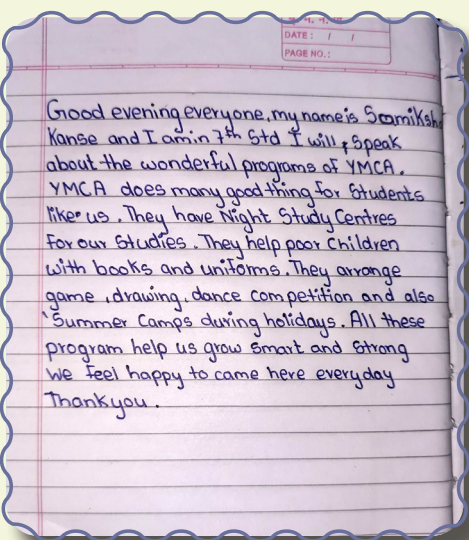 DATE : / /
PAGE NO.:
Good evening everyone, my name is Samiksh
Kanse and I am in 7th Std I will speak
about the wonderful programs of YMCA.
YMCA does many good thing for Students
like us. They have Night Study Centres
for our Studies. They help poor Children
with books and uniforms. They arrange
game, drawing, dance competition and also
Summer Camps during holidays. All these
program help us grow Smart and Strong
We feel happy to came here everyday
Thankyou.